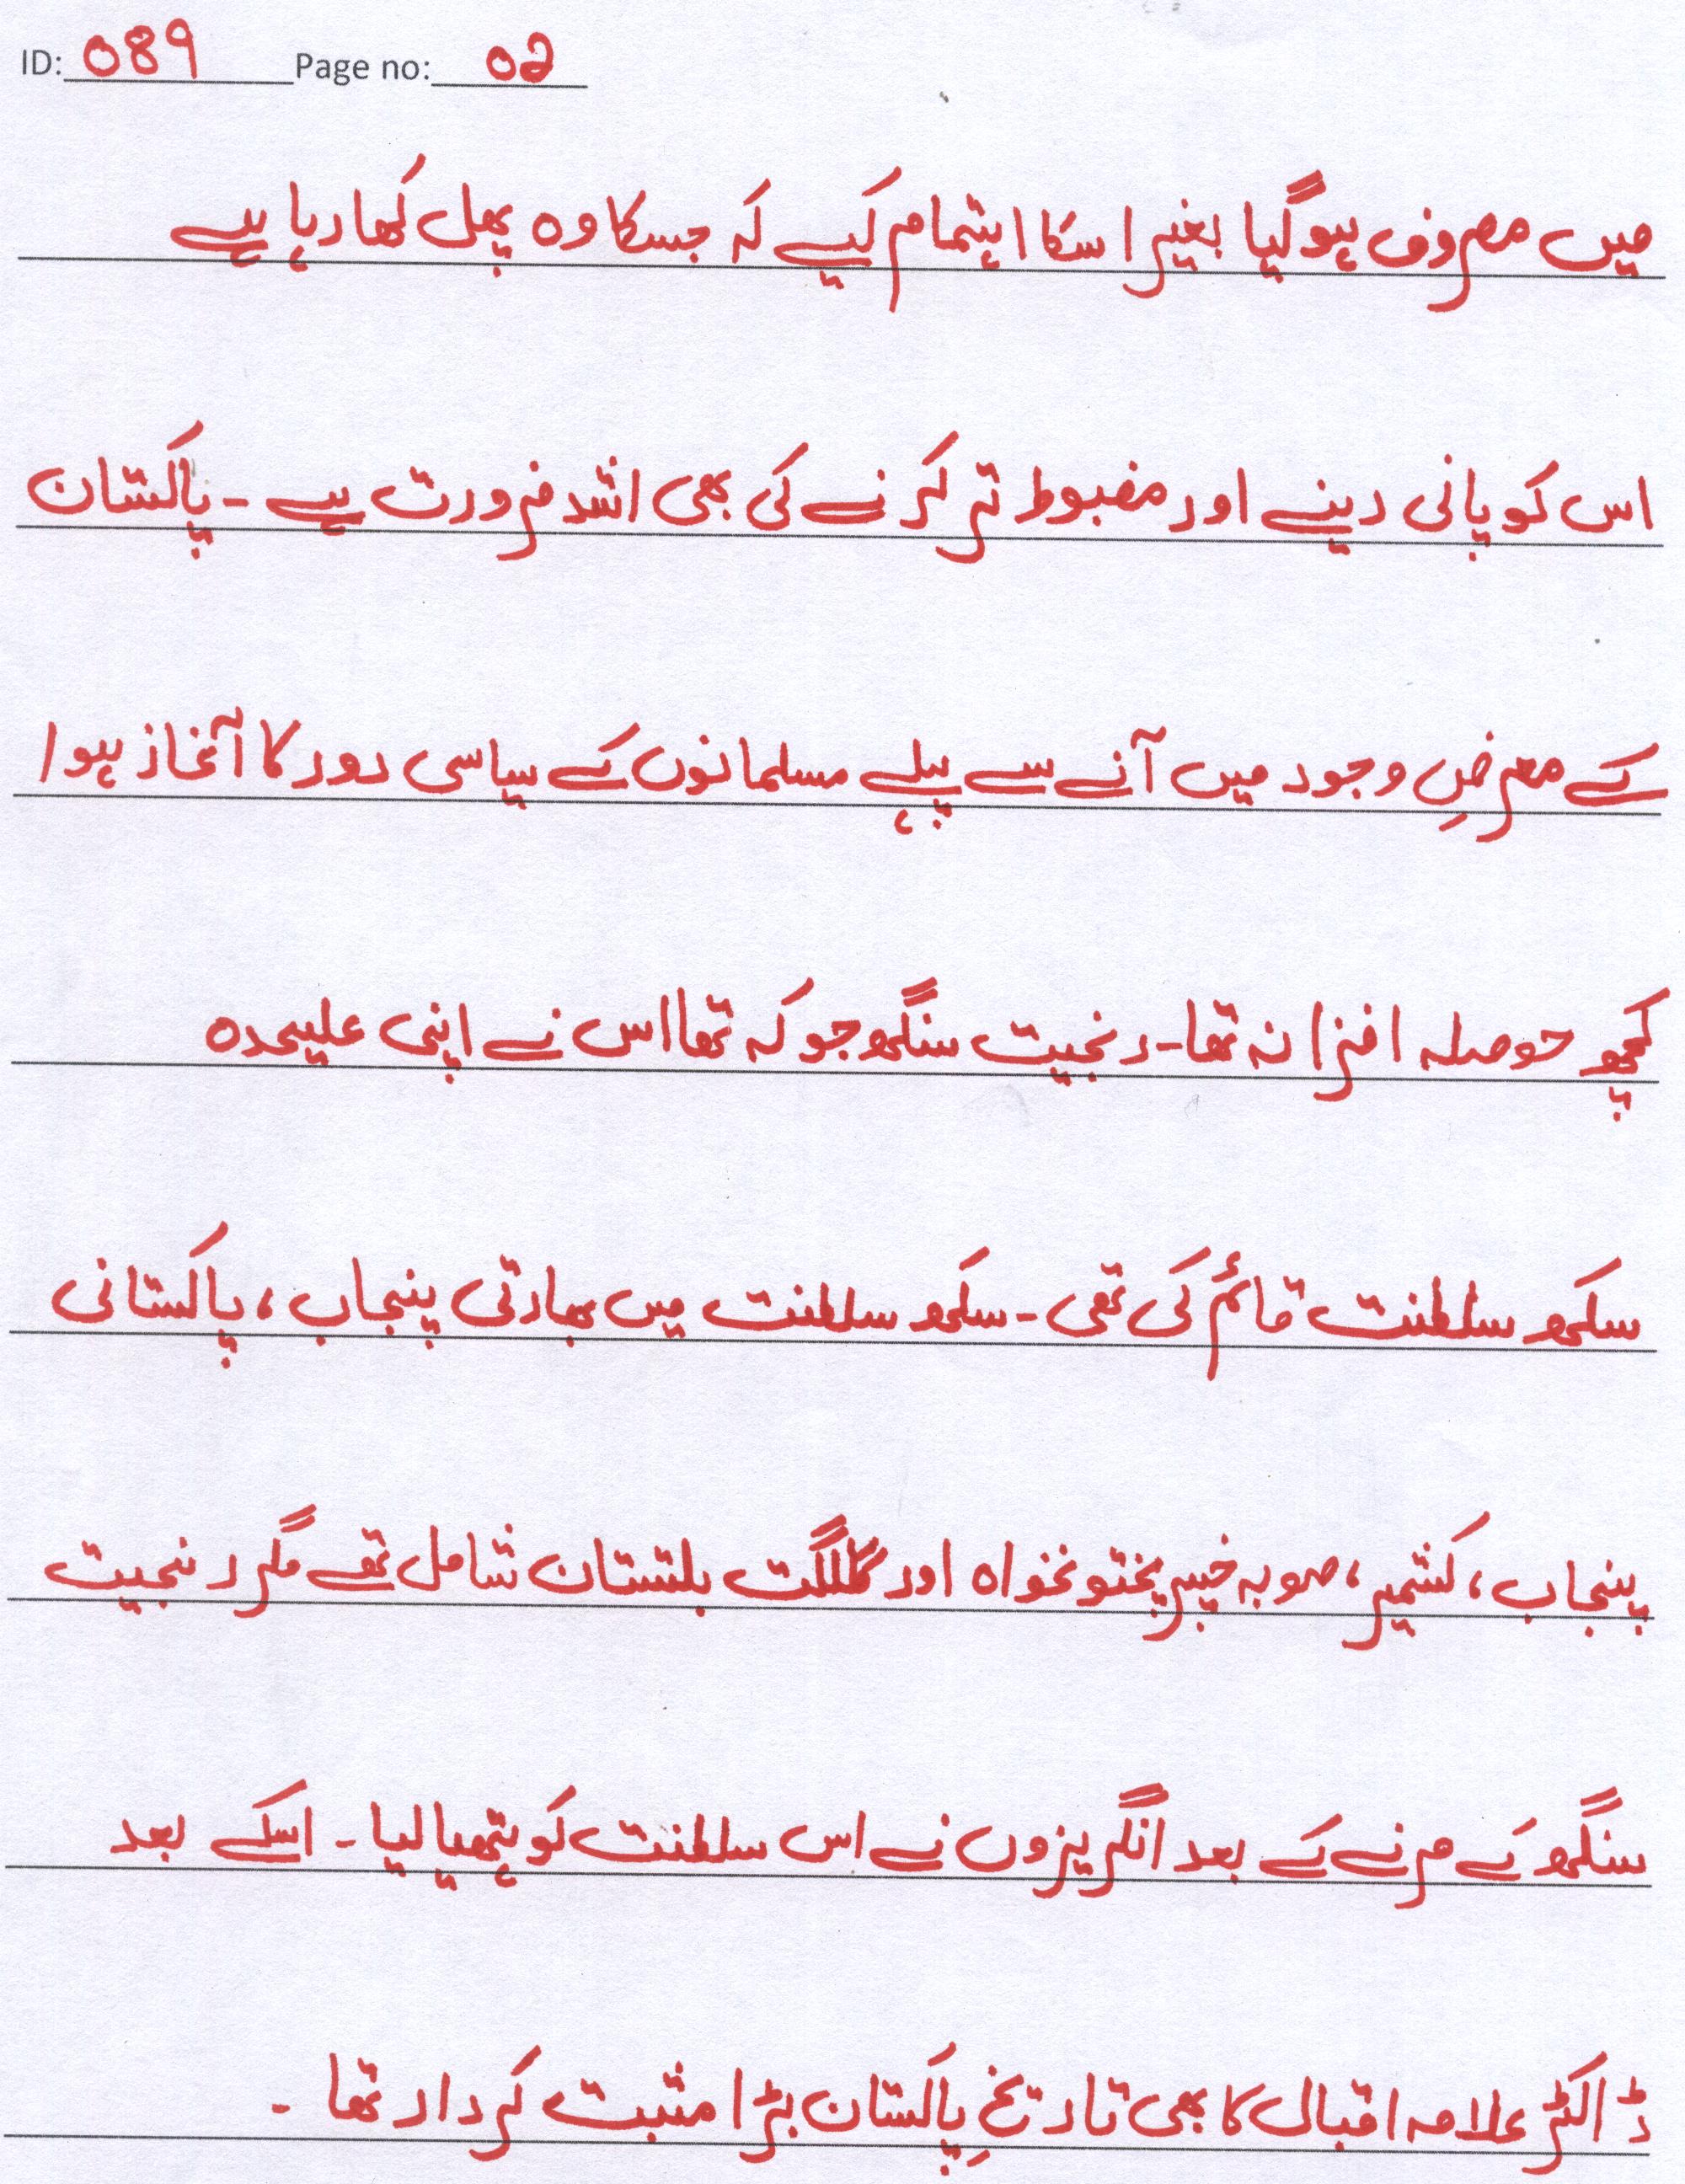 ID: 089 Page no: 02
میں مصروف ہوگیا بغیر اسکا اہتمام کیے کہ جسکا وہ پھل کھا رہا ہے
اس کو پانی دینے اور مضبوط تر کرنے کی بھی اشد ضرورت ہے ۔ پاکستان
کے معرضِ وجود میں آنے سے پہلے مسلمانوں کے سیاسی دور کا آغاز ہوا
کچھ حوصلہ افزا نہ تھا ۔ رنجیت سنگھ جو کہ تھا اس نے اپنی علیحدہ
سکھ سلطنت قائم کی تھی ۔ سکھ سلطنت میں بھارتی پنجاب ، پاکستانی
پنجاب ، کشمیر ، صوبہ خیبر پختونخواہ اور گلگت بلتستان شامل تھے مگر رنجیت
سنگھ کے مرنے کے بعد انگریزوں نے اس سلطنت کو ہتھیا لیا ۔ اسکے بعد
ڈاکٹر علامہ اقبال کا بھی تاریخِ پاکستان بڑا مثبت کردار تھا ۔